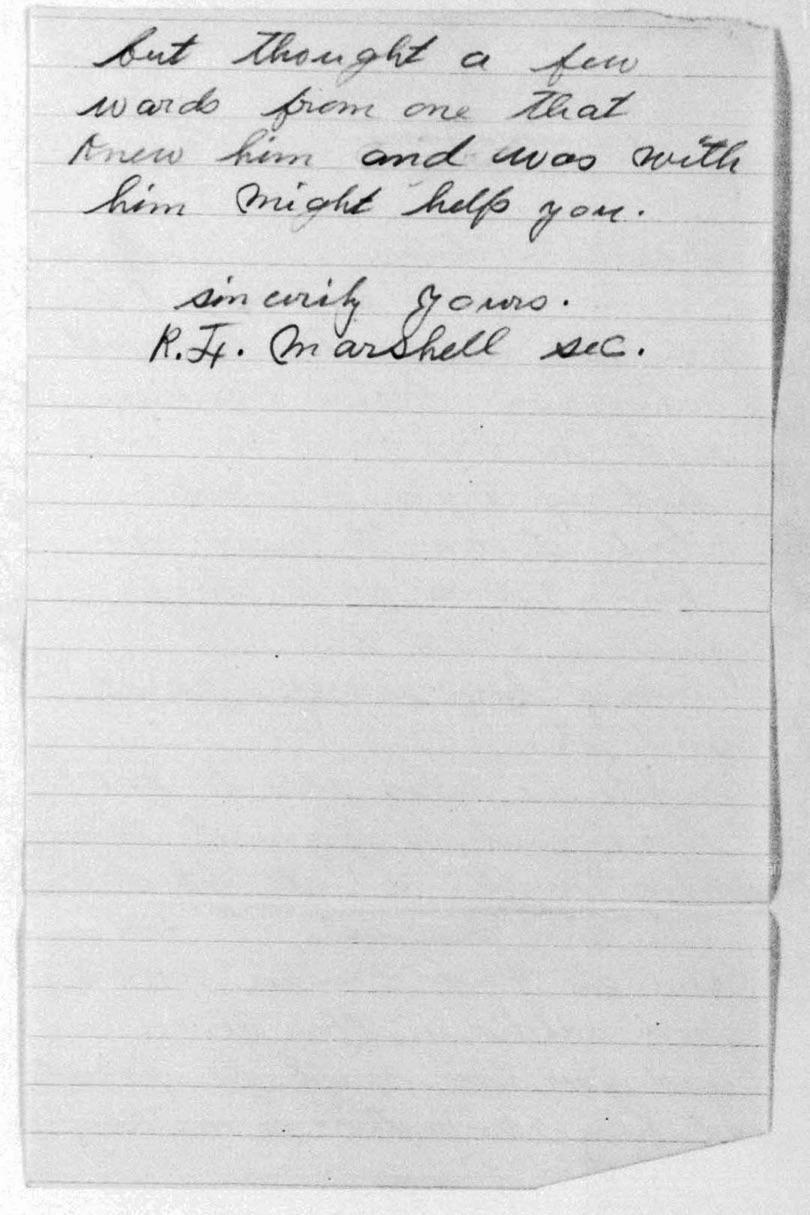 but thought a few
words from one that
Knew him and was with
him might help you.
sincerily yours.
R.H. Marshell sec.